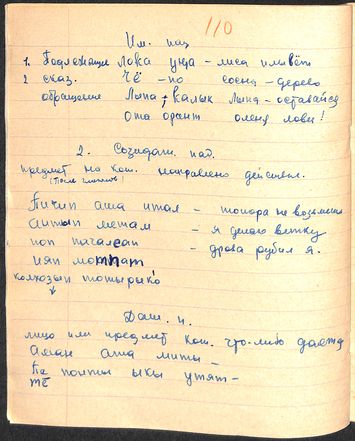 110
Им. пад
1. Подлежащее Лова уна – лиса плывёт
2 сказ. Чё – по сосна – дерево
обращение Лыпа, калык Лыпа – оставайся
Ота орант оленя лови!
2. Созидат. пад.
предмет на кот. направлено действие.
(После глаголов)
Пичип аша итал – топора не возьмешь
Антып метам – я делаю ветку
поп пагалсап – дрова рубил я.
няп мотпат
колхозып тотырыкó
Дат. п.
лицо или предмет кот. что-либо дается
Аман аша миты –
Пе понты ыкы утят –
тё